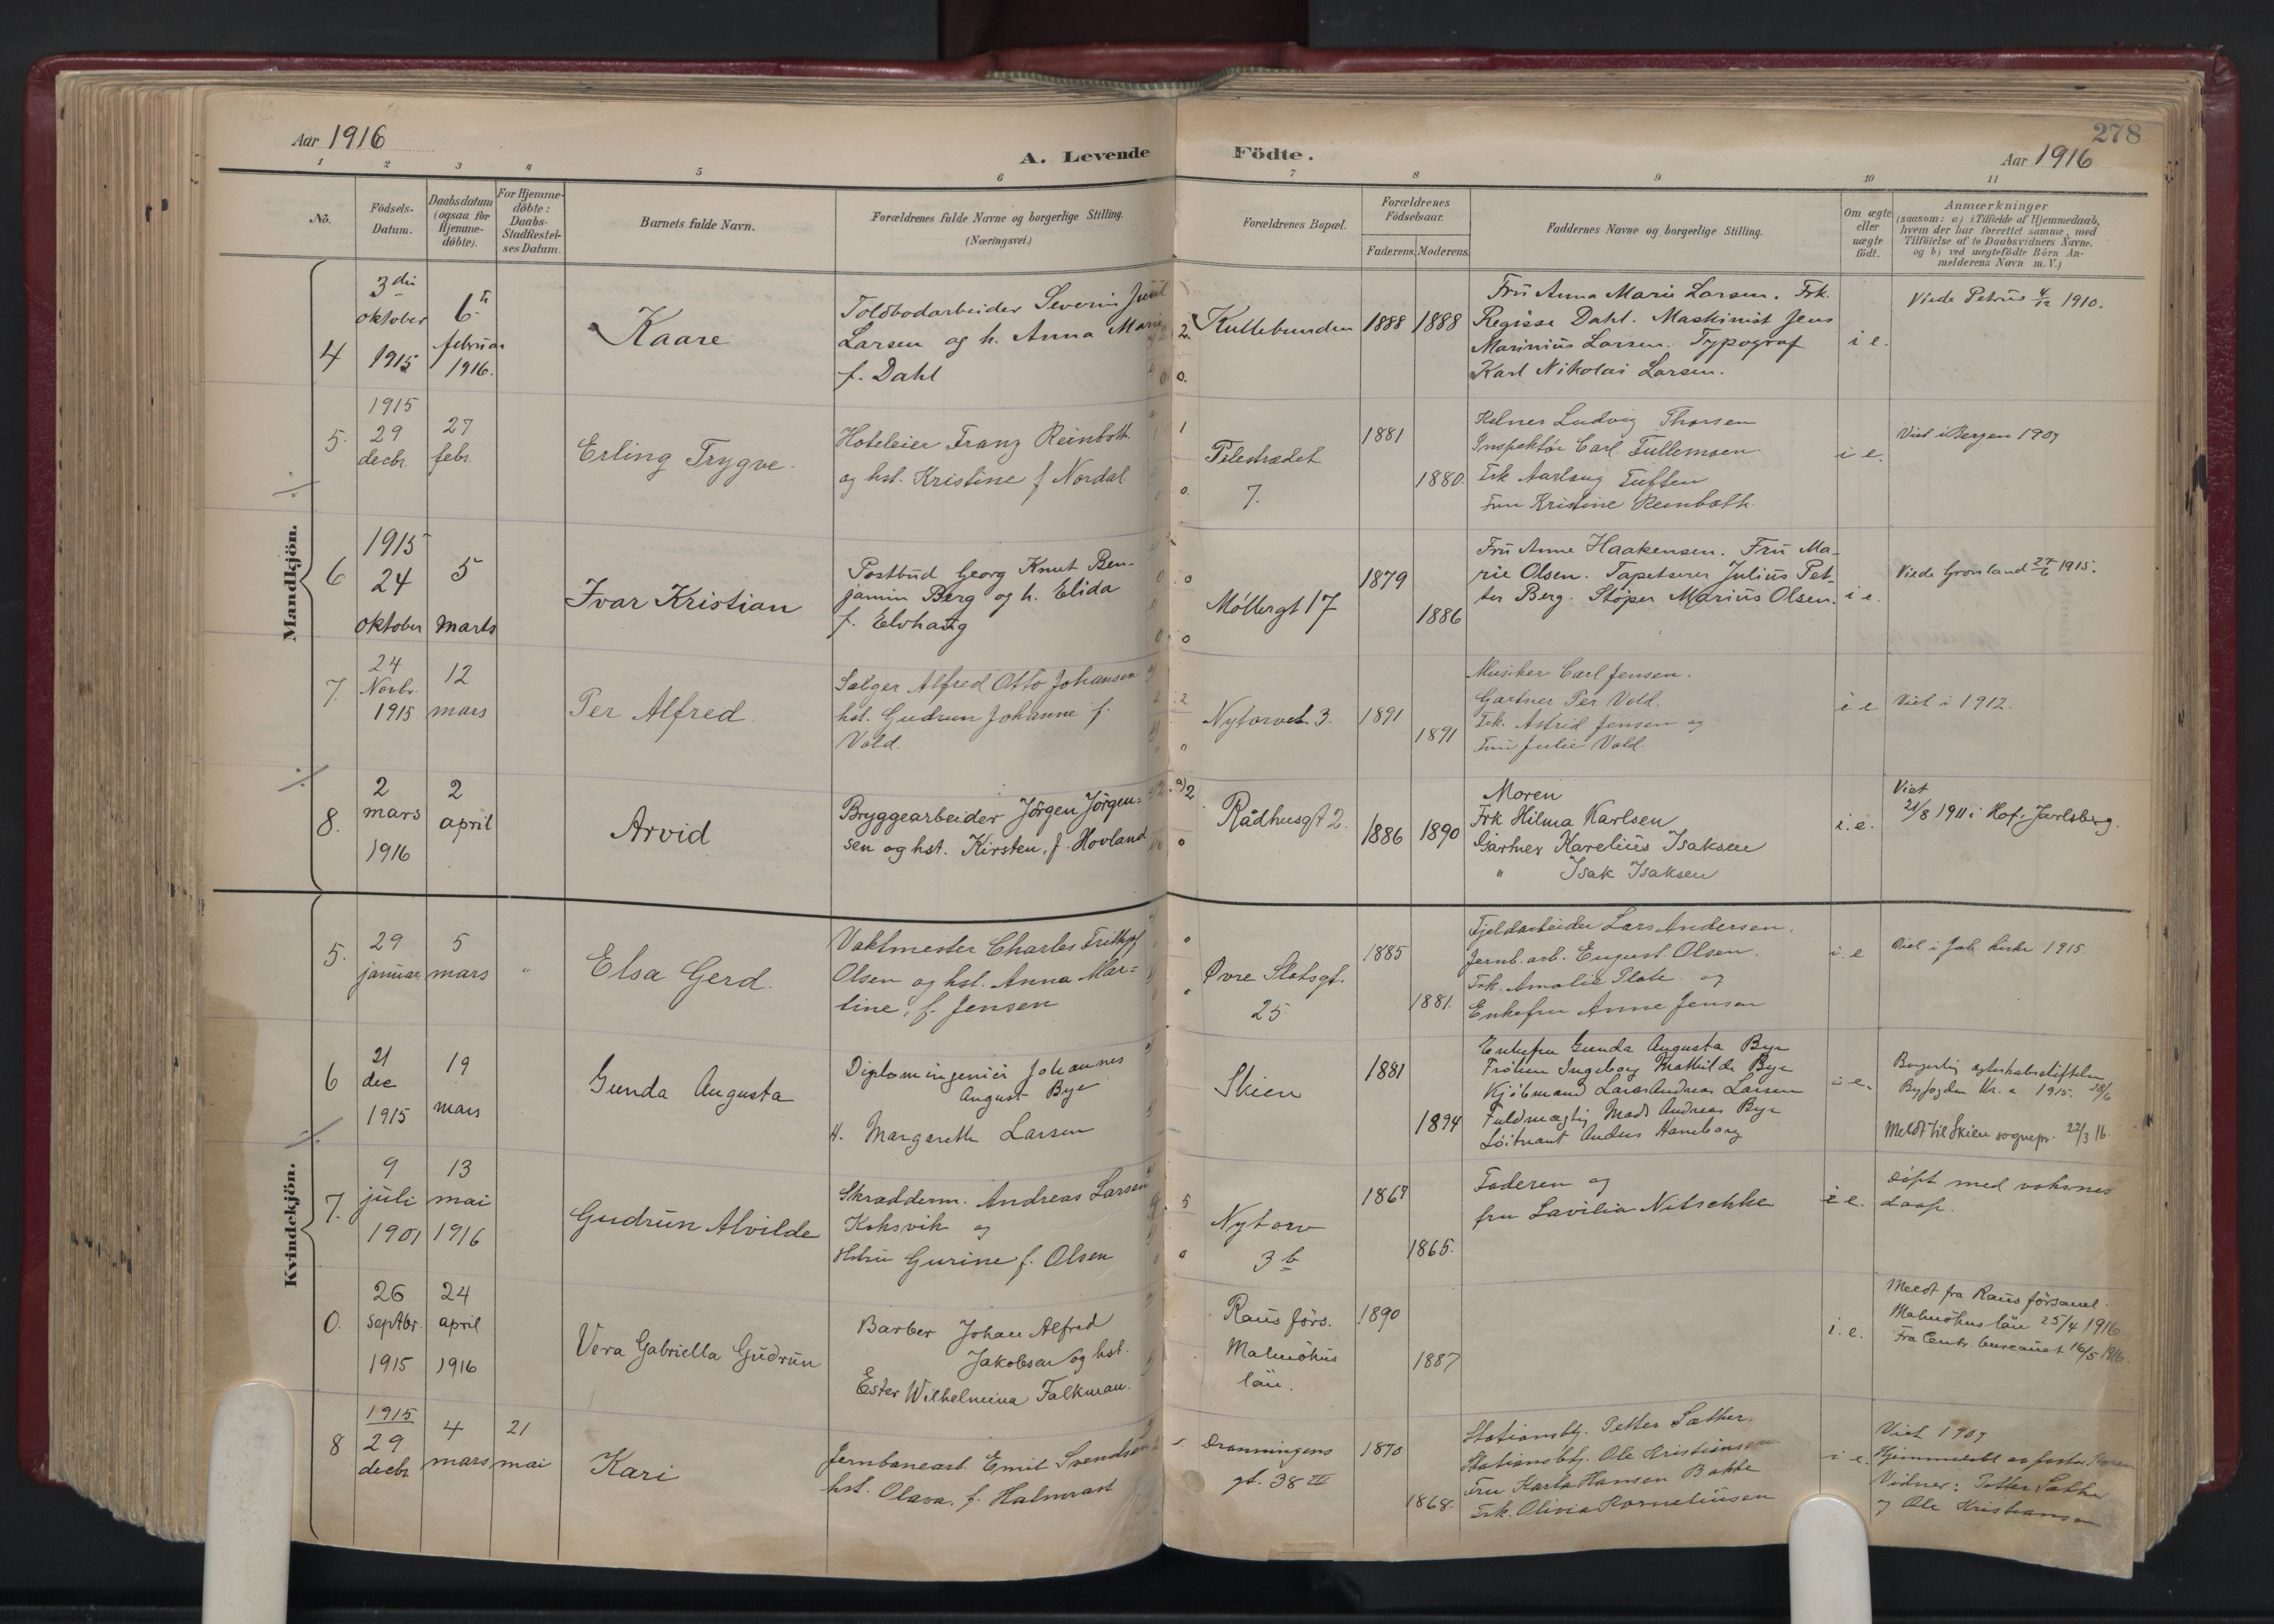 278
Aar 1916
A. Levende Födte.
Aar 1916
1 2 3 4 5 6 7 8 9 10 11
No.
Födsels-
Datum.
Daabsdatum
(ogsaa for
Hjemme-
döbte).
For Hjemme-
döbte:
Daabs-
Stadfæstel-
ses Datum.
Barnets fulde Navn.
Forældrenes fulde Navne og borgerlige Stilling.
(Næringsvei.)
Forældrenes Bopæl.
Forældrenes
Födselsaar.
Faderens. Moderens.
Faddernes Navne og borgerlige Stilling.
Om ægte
eller
uægte
födt.
Anmærkninger
(saasom: a) i Tilfælde af Hjemmedaab,
hvem der har forrettet samme, med
Tilföielse af to Daabsvidners Navne.
og b) ved uægtefödte Börn An-
melderens Navn m. V.)
Mandkjön.
4
3die
oktober
1915
6te
februar
1916.
Kaare
Toldbodarbeider Severin Juul
Larsen og h. Anna Marie
f. Dahl
Kullebunden
1888
1888
Fru Anna Marie Larsen. Frk.
Regisse Dahl. Maskinist Jens
Marinius Larsen. Typograf
Karl Nikolai Larsen.
i e.
Viede Petrus 4/12 1910.
5.
1915
29
decbr.
27
febr.
Erling Trygve.
Hoteleier Franz Reinboth
og hst. Kristine f Nordal
Pilestrædet
7.
1881
1880.
Kelner Ludvig Thorsen
Inspektør Carl Tullemoen
Frk Aarlaug Tuften
Fru Kristine Reinboth.
i e.
Viet i Bergen 1907
6
1915
24
oktober
5
marts
Ivar Kristian
Postbud Georg Knut Ben-
jamin Berg og h. Elida
f. Elvhaug
Møllergt 17
1879
1886
Fru Anne Haakensen. Fru Ma-
rie Olsen. Tapetserer Julius Pet-
ter Berg. Støper Marius Olsen.
i e.
Viede Grønland 27/6 1915.
7.
24
Novbr.
1915
12
mars
Per Alfred
Sælger Alfred Otto Johansen
hst. Gudrun Johanne f.
Vold.
Nytorvet 3.
1891
1891
Musiker Carl Jensen.
Gartner Per Vold.
Frk. Astrid Jensen og
Fru Julie Vold.
i e
Viet i 1912.
8.
2
mars
1916
2
april
Arvid
Bryggearbeider Jörgen Jörgen=
sen og hst. Kirsten, f. Hovland
Rådhusgt 2.
1886
1890
Moren
Frk Hilma Karlsen
Gartner Karelius Isaksen
" Isak Isaksen
i. e.
Viet
21/8 1911 i Hof, Jarlsberg.
Kvindekjön.
5.
29
januar
5
mars
"
Elsa Gerd.
Vaktmester Charles Frithjof
Olsen og hst. Anna Mar=
tine, f. Jensen
Øvre Slotsgt.
25
1885
1881.
Fjeldarbeider Lars Andersen.
Jernb. arb. August Olsen.
Frk. Amalie Plate og
Enkefru Anne Jensen
i. e
Viet i Joh. kirke 1915.
6
21
dec
1915
19
mars
Gunda Augusta
Diplomingeniør Johannes
August Bye
H. Margarethe Larsen
Skien
1881
1894
Enkefru Gunda Augusta Bye
Frøken Ingeborg Mathilde Bye
Kjöbmand Lars Andreas Larsen
Fuldmægtig Mads Andreas Bye
Löitnant Anders Hamborg
i e.
Borgerlig
Byfogden Kr. a 1915. 28/6
Meldt til Skien sognepr. 22/3 16.
7.
9
juli
1901
13
mai
1916
Gudrun Alvilde
Skrædderm. Andreas Larsen
Koksvik og
Hstru Gurine f. Olsen
Nytorv
3 b
1867
1865.
Faderen og
fru Lavilia Nitschke
i e.
døpt med voksnes
daap.
0.
26
septbr.
1915
24
april
1916
Vera Gabriella Gudrun
Barber Johan Alfred
Jakobsen og hst.
Ester Wilhelmina Falkman.
Raus förs.
Malmöhus
län.
1890
1887
i. e.
Meldt fra Raus församl.
Malmöhus län 25/4 1916
Fra Centr. bureauet 16/5 1916.
8
1915
29
decbr
4
mars
21
mai
Kari
Jernbanearb. Emil Svendsen
hst. Olava, f. Halmrast
Dronningens
gt. 38 III
1870
1868.
Stationsbtj. Petter Sæther
Stationsbtj. Ole Kristiansen
Fru Karla Hansen Bakke
Frk. Olivia Korneliussen
i e.
Viet 1907
Hjemmedøbt av
Vidner: Petter Sæther
og Ole Kristiansen